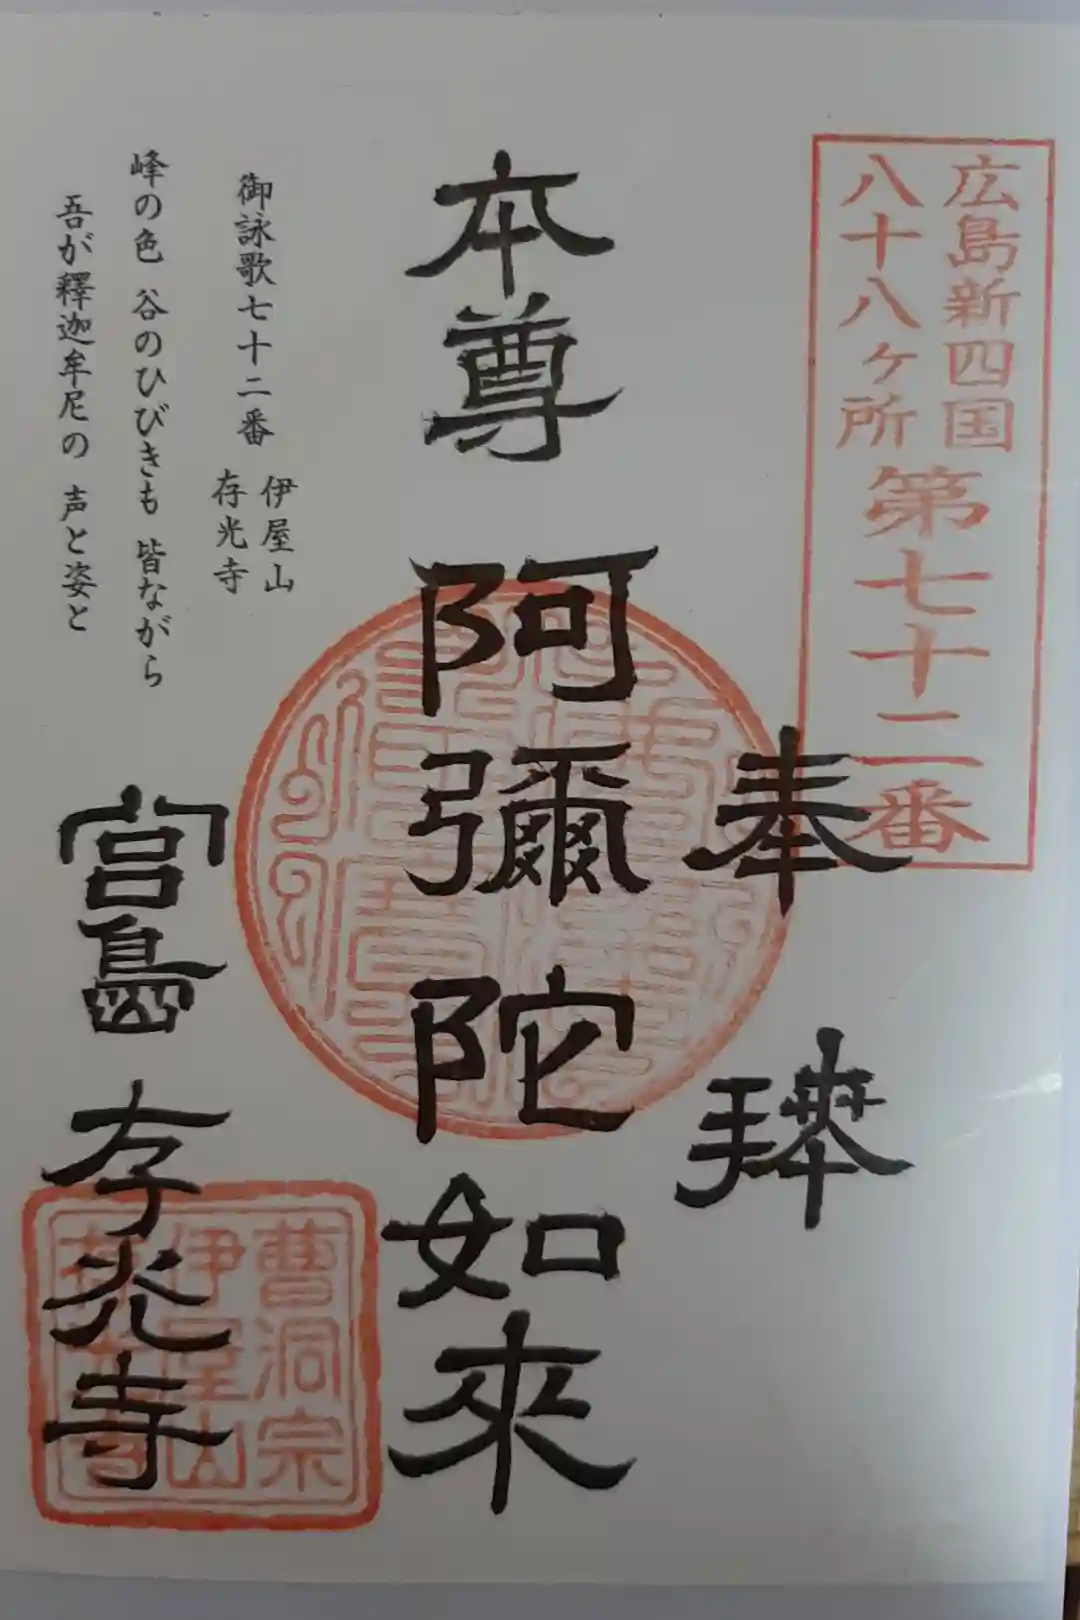 広島新四国
八十八ヶ所
第七十二番
奉拝
本尊 阿彌陀如來
御詠歌七十二番
伊屋山
存光寺
峰の色 谷のひびきも 皆ながら
吾が釋迦牟尼の 声と姿と
宮島 存光寺
曹洞宗
伊屋山
存光寺